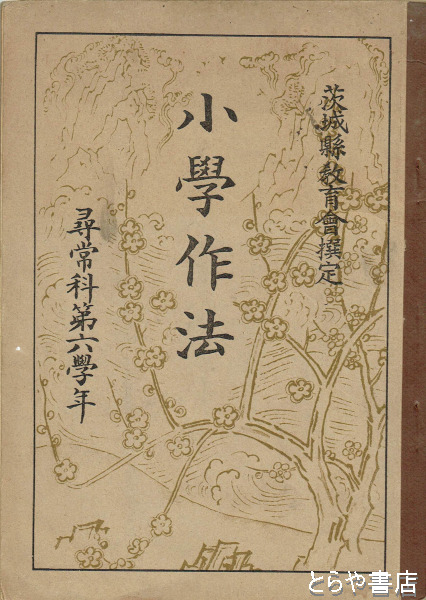 茨城縣教育會撰定
小學作法
尋常科第六學年
とらや書店